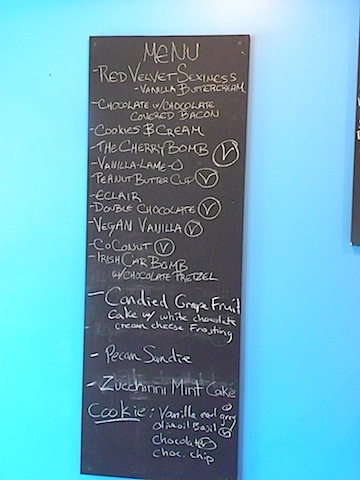 MENU
- RED VELVET SEXINESS
- VANILLA BUTTERCREAM
- CHOCOLATE W/CHOCOLATE
COVERED BACON
- COOKIES & CREAM
- THE CHERRY BOMB V
- VANILLA-LAME-O
- PEANUT BUTTER CUP V
- ECLAIR
- DOUBLE CHOCOLATE V
- VEGAN VANILLA V
- COCONUT V
- IRISH CAR BOMB
W/CHOCOLATE PRETZEL
- Candied Grape Fruit
Cake w/ white chocolate
cream cheese Frosting
- Pecan Sandie
- Zucchirini Mint Cake
Cookie: Vanilla earl grey V
olive oil Basil V
chocolate V
choc. chip